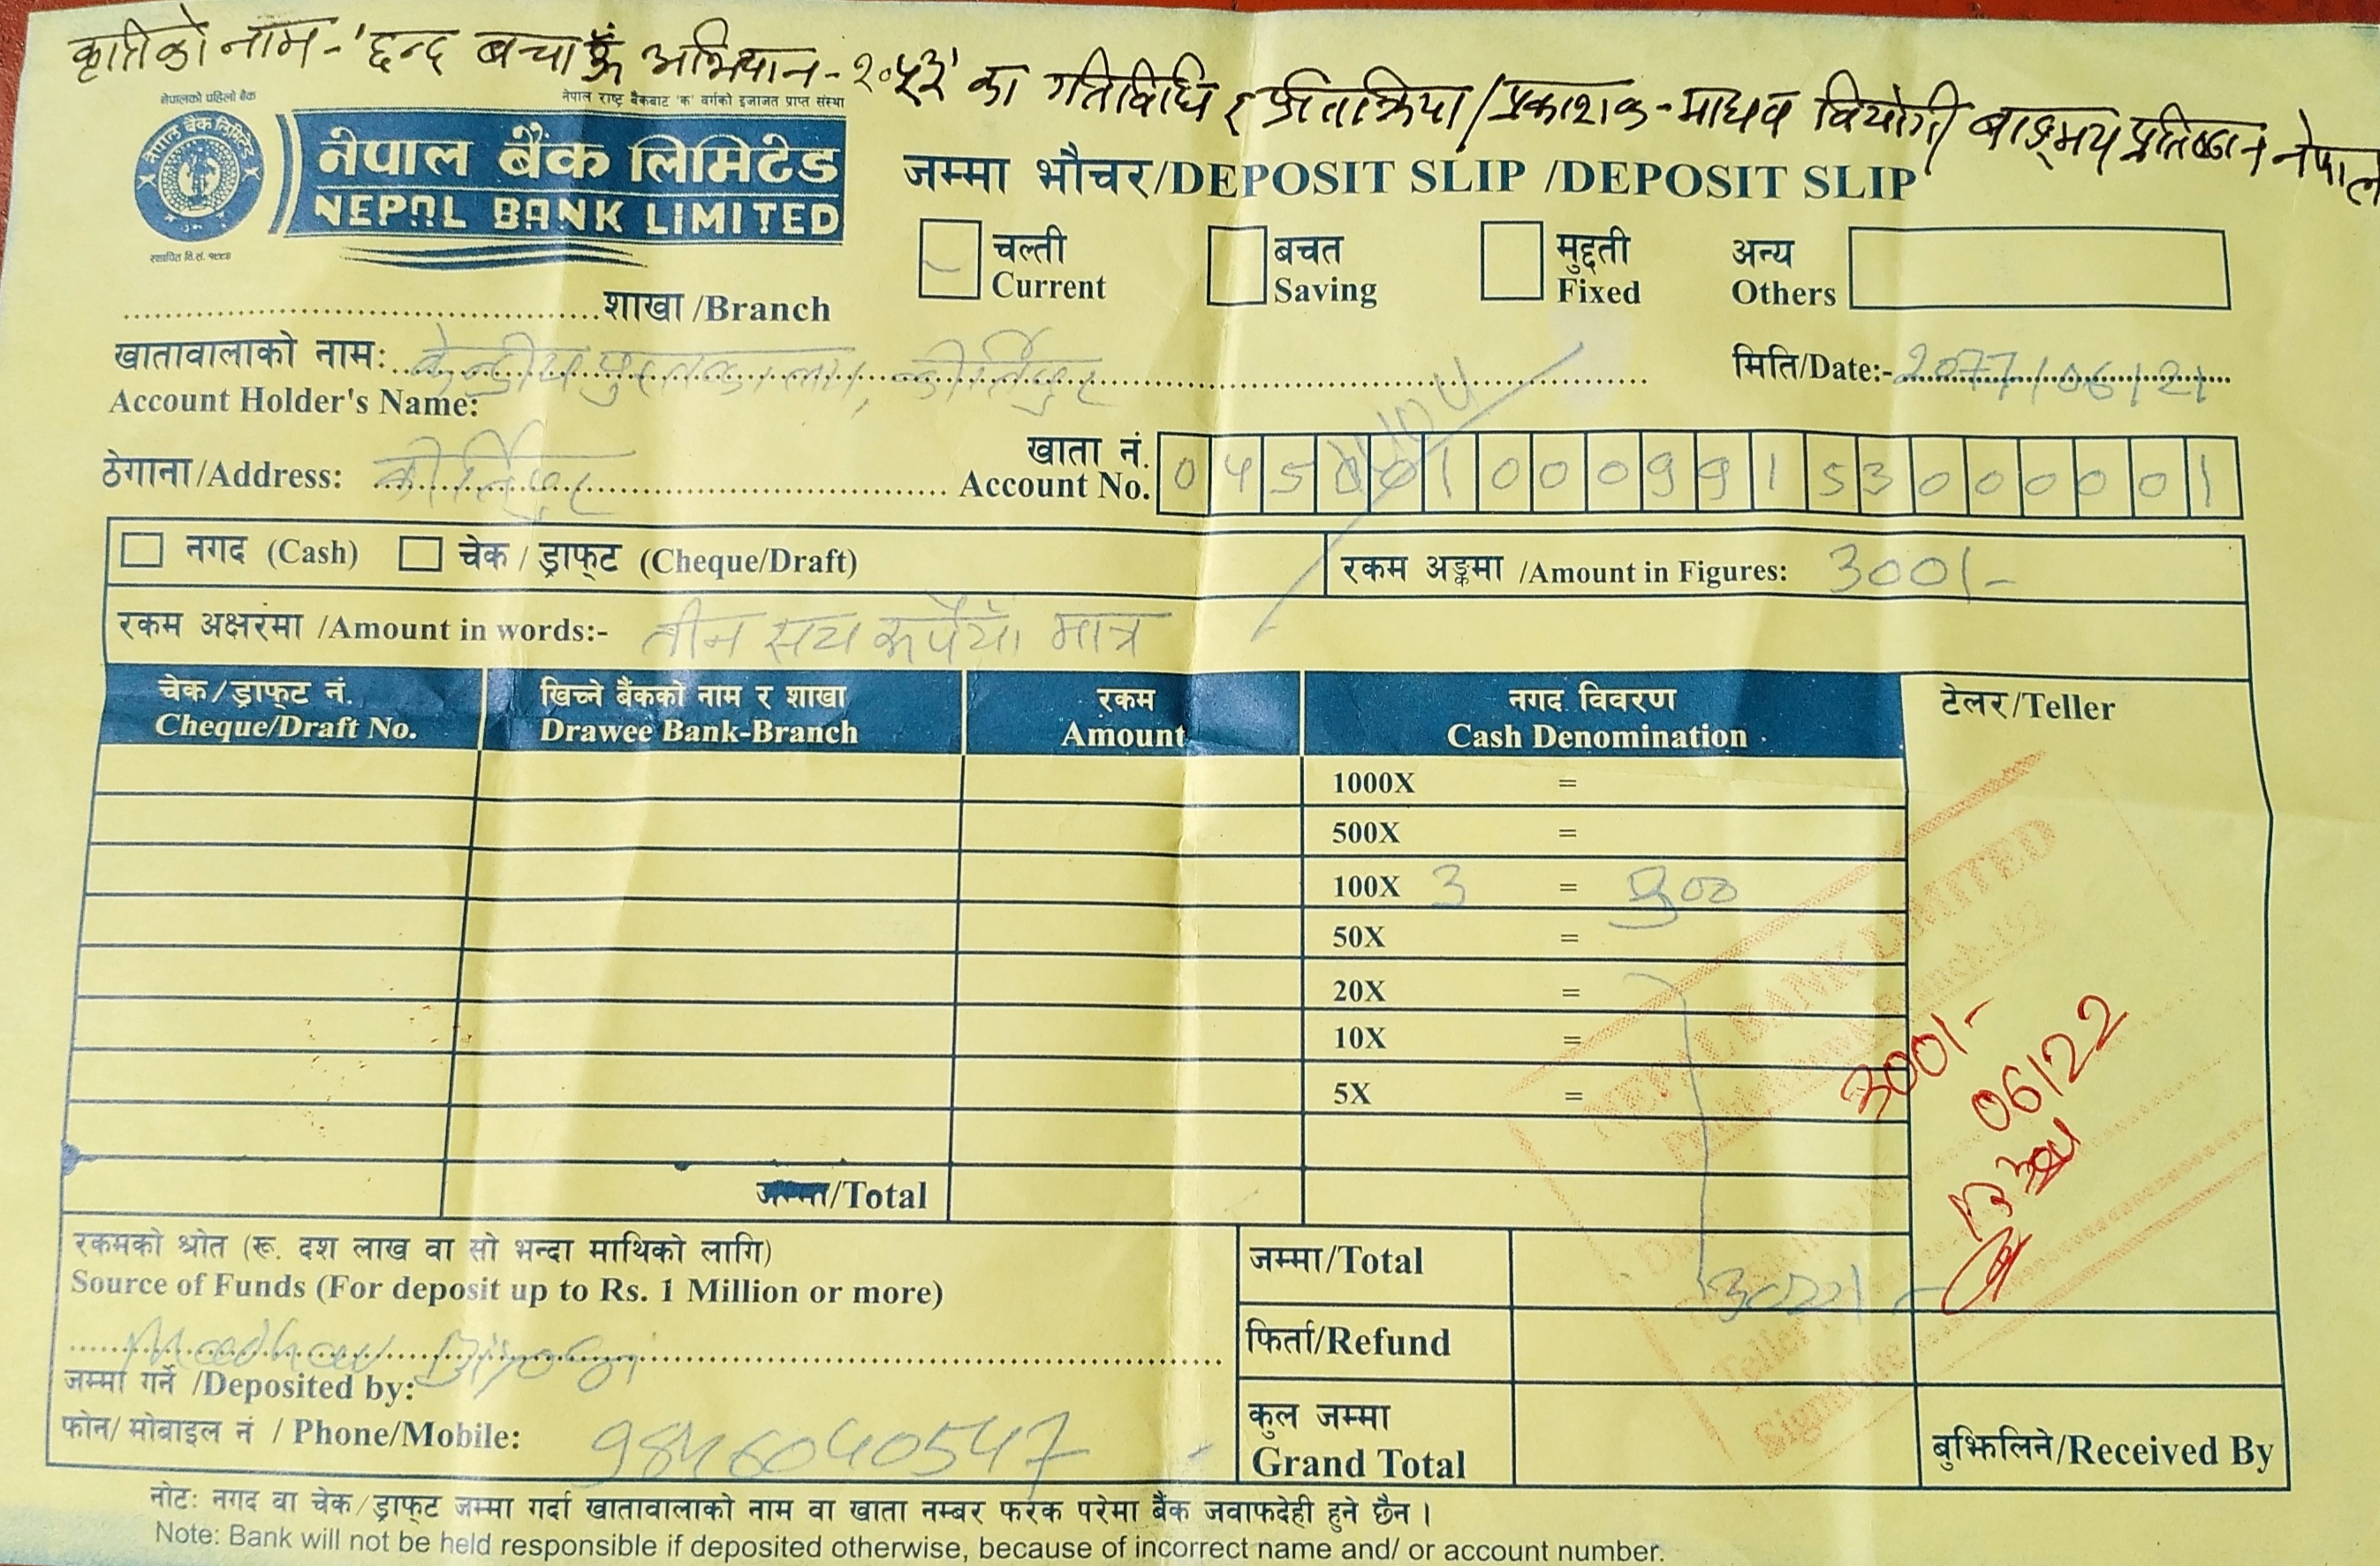 कृतिको नाम-'छन्द बचाऔँ अभियान-२०५३' का गतिविधि र प्रतिक्रिया/प्रकाशक-माधव वियोगी बाङ्मय प्रतिष्ठान नेपाल
नेपालको पहिलो बैंक
नेपाल राष्ट्र बैंकबाट 'क' वर्गको इजाजत प्राप्त संस्था
नेपाल बैंक लिमिटेड
नेपाल बैंक लिमिटेड
NEPAL BANK LIMITED
स्थापित वि.सं. १९९४
जम्मा भौचर/DEPOSIT SLIP /DEPOSIT SLIP
चल्ती
Current
बचत
Saving
मुद्दती
Fixed
अन्य
Others
शाखा /Branch
खातावालाको नाम: केन्द्रीय पुस्तकालय, कीर्तिपुर
Account Holder's Name:
मिति/Date:- 2077/06/21
ठेगाना/Address: कीर्तिपुर
खाता नं.
Account No. 04500100099153000001
नगद (Cash) चेक / ड्राफ्ट (Cheque/Draft)
रकम अङ्कमा /Amount in Figures: 300/-
रकम अक्षरमा /Amount in words:- तीन सय रूपैयाँ मात्र
चेक/ड्राफ्ट नं.
Cheque/Draft No.
खिच्ने बैंकको नाम र शाखा
Drawee Bank-Branch
रकम
Amount
नगद विवरण
Cash Denomination
टेलर/Teller
1000X =
500X =
100X 3 = 300
50X =
20X =
10X =
5X =
NEPAL BANK LIMITED
300/-
06/22
जम्मा/Total
रकमको श्रोत (रू. दश लाख वा सो भन्दा माथिको लागि)
Source of Funds (For deposit up to Rs. 1 Million or more)
जम्मा/Total 300/-
फिर्ता/Refund
कुल जम्मा
Grand Total
Madhav Biyogi
जम्मा गर्ने /Deposited by:
फोन/ मोबाइल नं / Phone/Mobile: 9846040547
बुझिलिने/Received By
नोट: नगद वा चेक/ड्राफ्ट जम्मा गर्दा खातावालाको नाम वा खाता नम्बर फरक परेमा बैंक जवाफदेही हुने छैन ।
Note: Bank will not be held responsible if deposited otherwise, because of incorrect name and/ or account number.